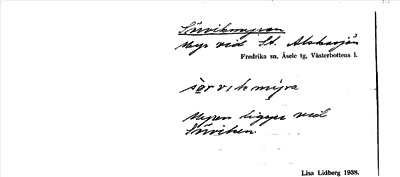 Sörvikmyran
Myr vid St. Abskasjön
Fredrika sn, Åsele tg, Västerbottens l.
Myren ligger vid
Sörviken
Lisa Lidberg 1938.